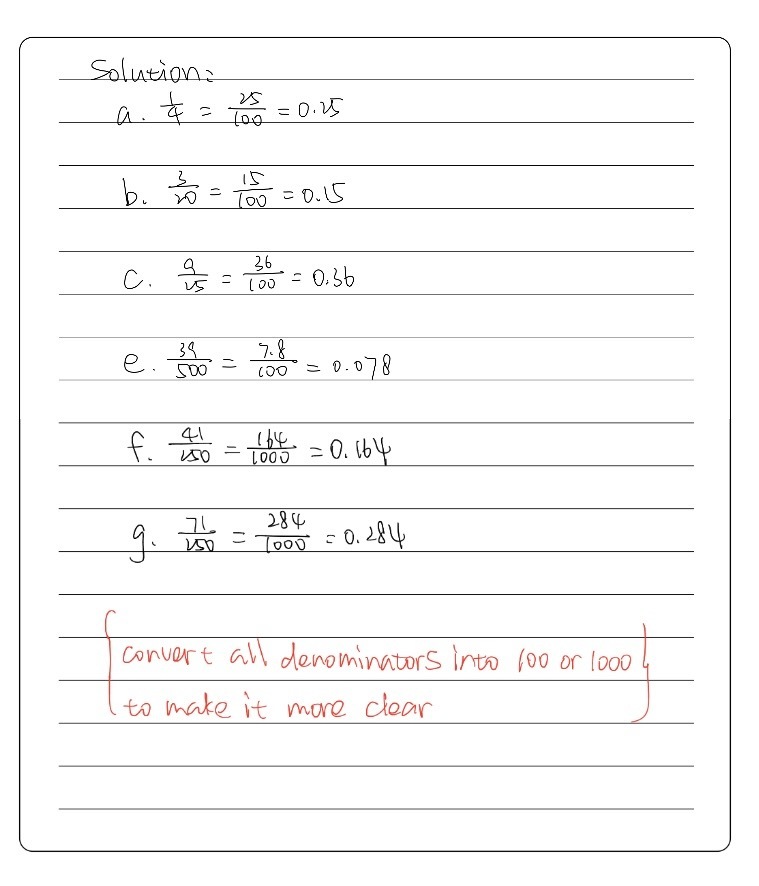 Solution:
a. 1/4 = 25/100 = 0.25
b. 3/20 = 15/100 = 0.15
c. 9/25 = 36/100 = 0.36
e. 39/500 = 7.8/100 = 0.078
f. 41/250 = 164/1000 = 0.164
g. 71/250 = 284/1000 = 0.284
(convert all denominators into 100 or 1000
to make it more clear)